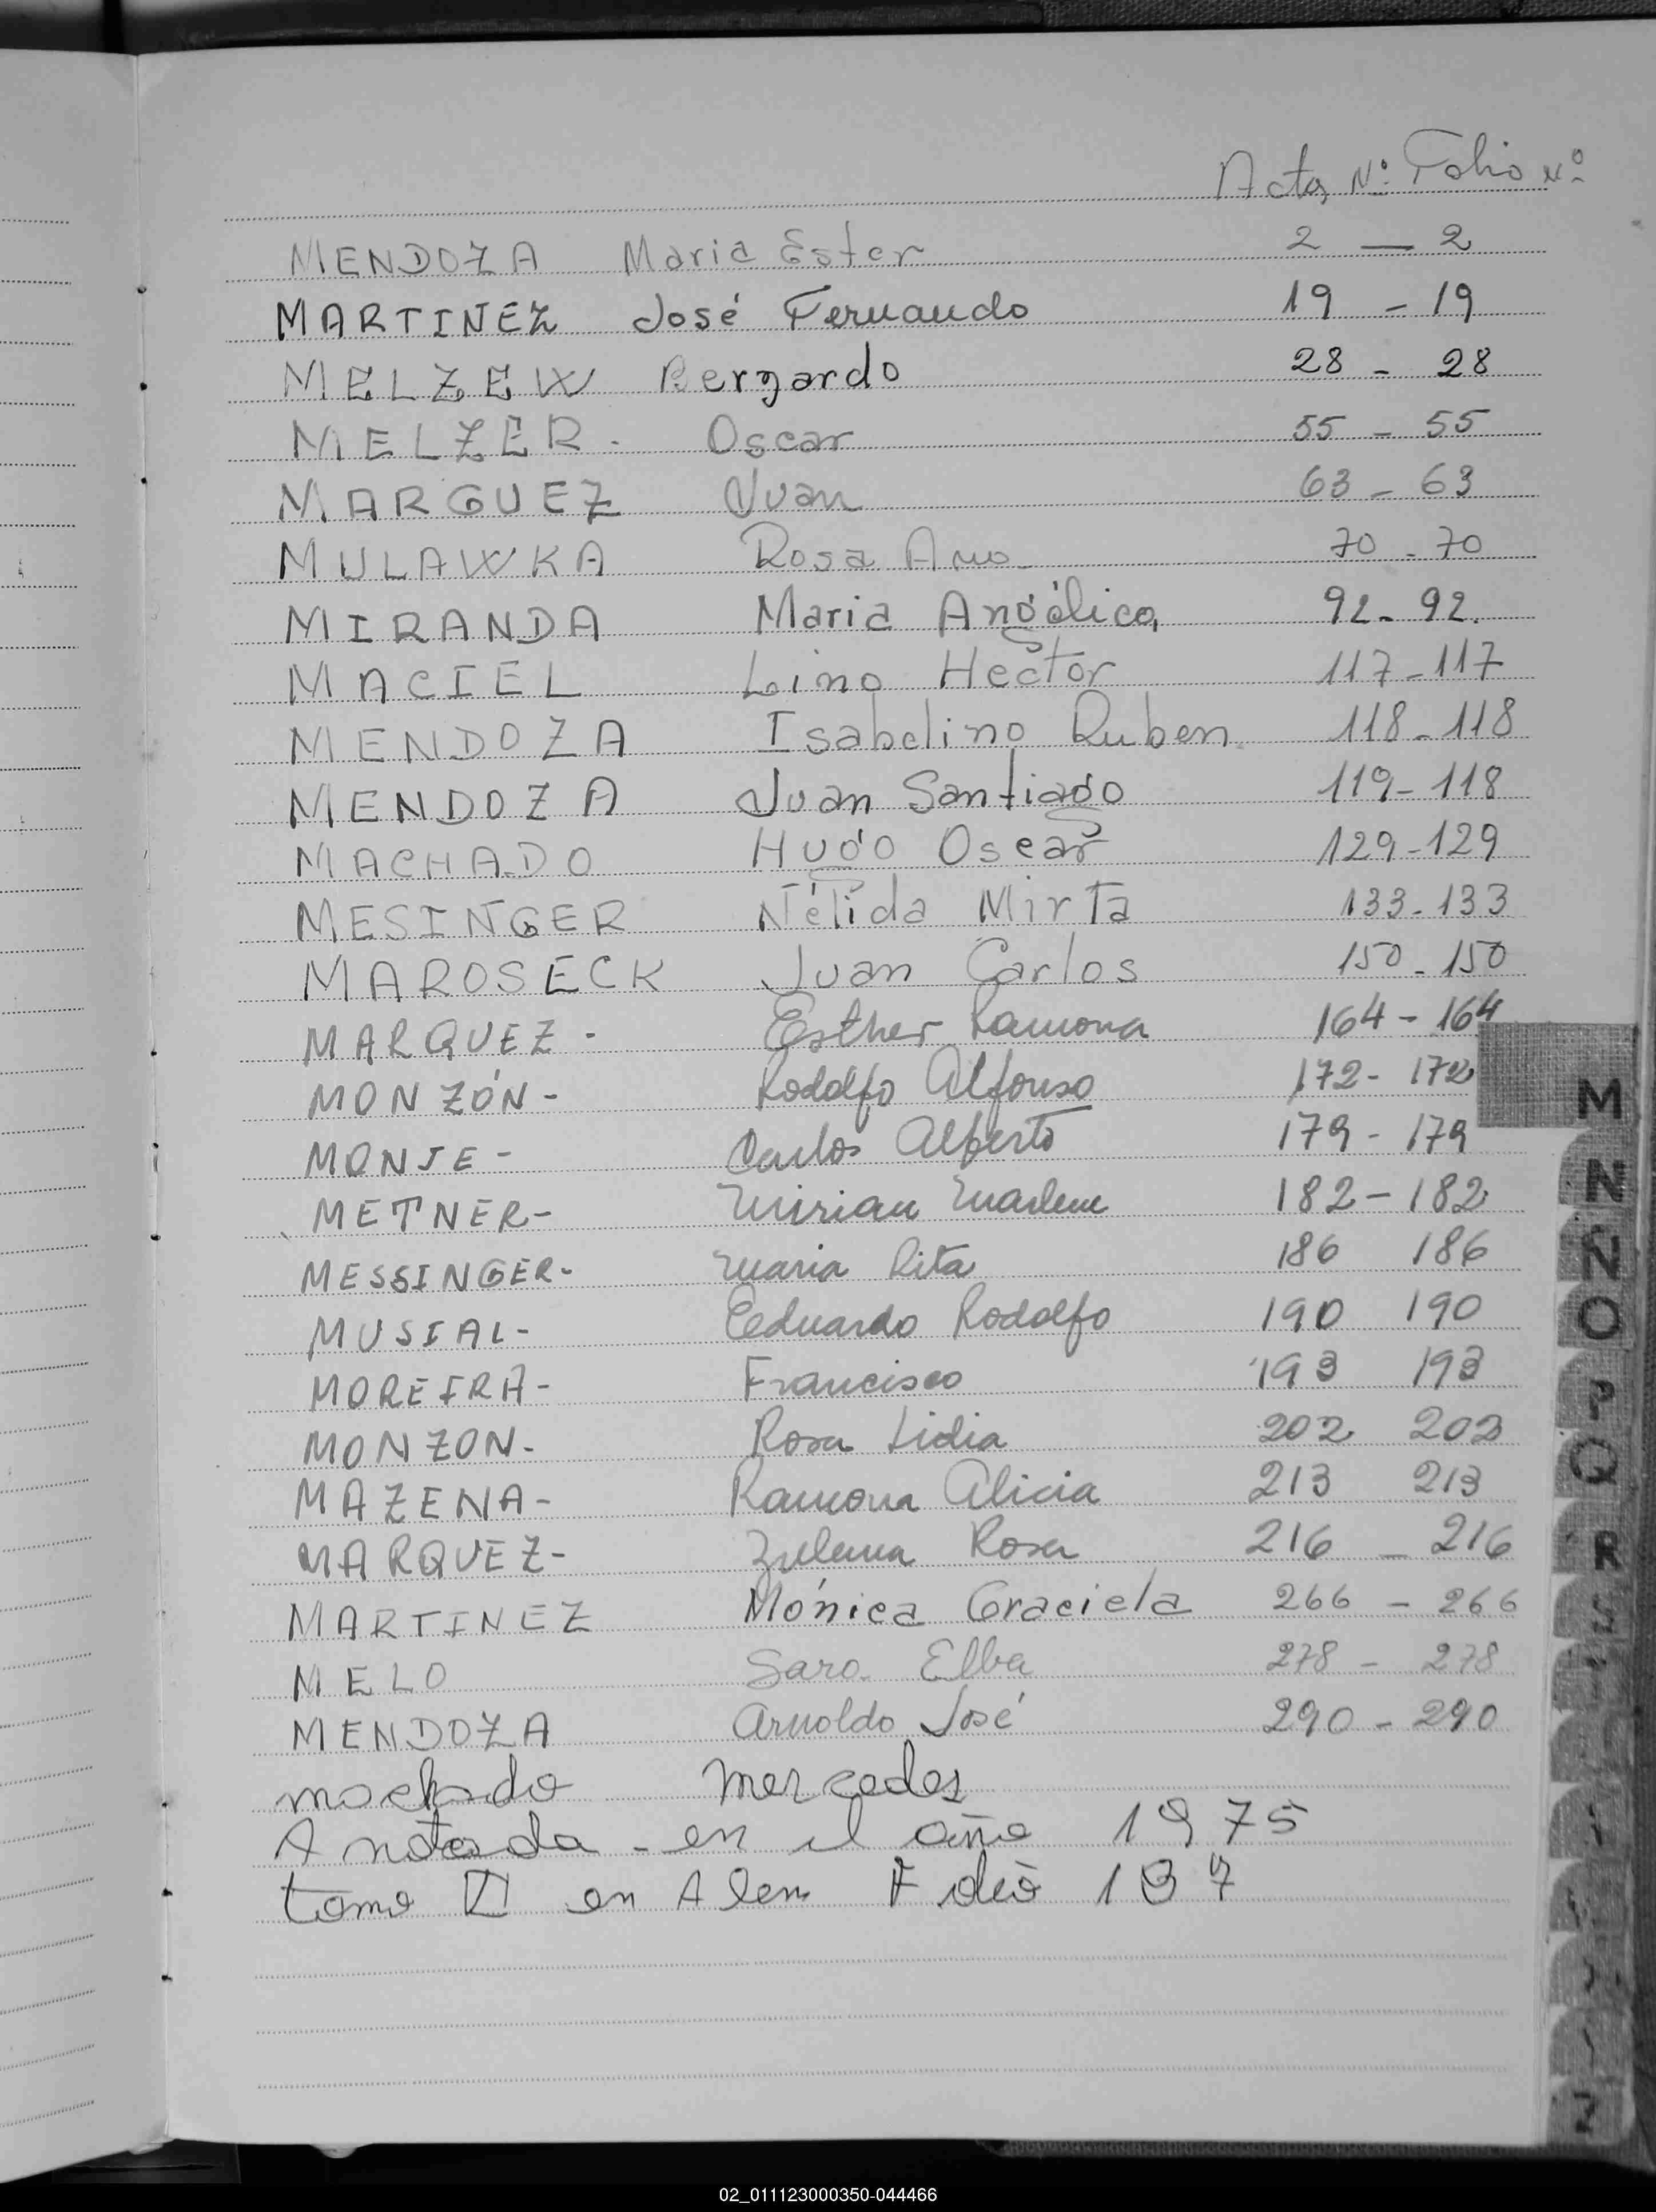 Acta, Nº Folio Nº
MENDOZA Maria Ester 2 — 2
MARTINEZ José Fernando 19 - 19
MELZEW Bernardo 28 - 28
MELZER - Oscar 55 - 55
MARGUEZ Juan 63 - 63
MULAWKA Rosa Ana 70 - 70
MIRANDA Maria Angélica 92 - 92.
MACIEL Lino Hector 117 - 117
MENDOZA Isabelino Ruben 118 - 118
MENDOZA Juan Santiago 119 - 118
MACHADO Hugo Oscar 129 - 129
MESINGER Nélida Mirta 133 - 133
MAROSECK Juan Carlos 150 - 150
MARQUEZ - Esther Ramona 164 - 164
MONZÓN - Rodolfo Alfonso 172 - 172
MONJE - Carlos Alberto 179 - 179
METNER - Mirian Marlene 182 - 182
MESSINGER - Maria Rita 186 186
MUSIAL - Eduardo Rodolfo 190 190
MOREIRA - Francisco 193 193
MONZON - Rosa Lidia 202 202
MAZENA - Ramona Alicia 213 213
MARQUEZ - Zulema Rosa 216 - 216
MARTINEZ Mónica Graciela 266 - 266
MELO Sara Elba 278 - 278
MENDOZA Arnoldo José 290 - 290
machado Mercedes
Anotada - en el año 1975
tomo II en Alem Folio 137
M
N
Ñ
O
P
Q
R
S
Z
02_011123000350-044466